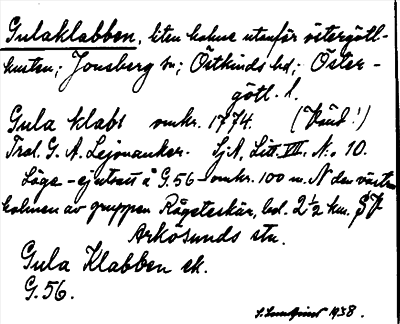 Gulaklabben, liten holme utanför östergötl-
kusten; Jonsberg sn; Östkinds hd; Öster-
götl. l.
Gula klabb omkr. 1774. (Vänd!)
Trol. G. A. Lejonanker. SjA, Litt. VII. N:o 10.
Läge - ej utsatt å G.56 - omkr. 100 m. N den västra
holmen av gruppen Rågsteskär, bel. 2½ km. SV
Arkösunds stn.
Gula Klabben sk.
G.56.
1938.